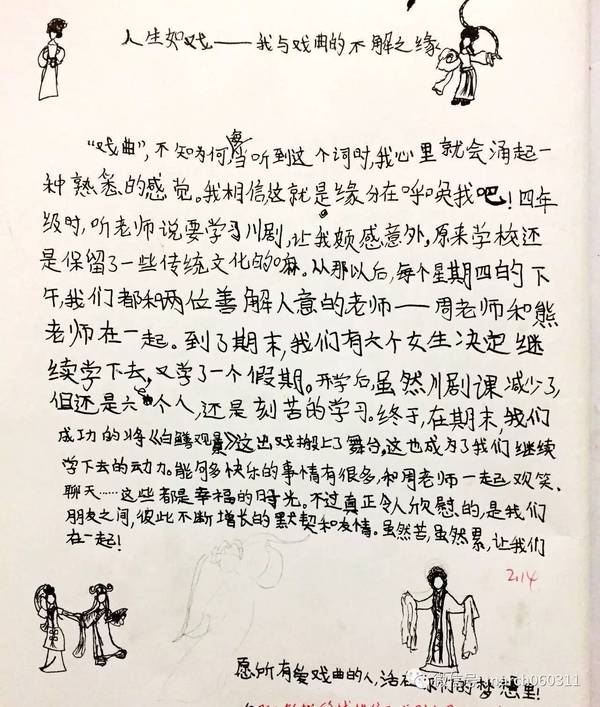 人生如戏——我与戏曲的不解之缘
“戏曲”,不知为何每当听到这个词时,我心里就会涌起一
种熟悉的感觉。我相信这就是缘分在呼唤我吧!四年
级时,听老师说要学习川剧,让我颇感意外,原来学校还
是保留了一些传统文化的嘛。从那以后,每个星期四的下
午,我们都和两位善解人意的老师——周老师和熊
老师在一起。到了期末,我们有六个女生决定继
续学下去,又学了一个假期。开学后,虽然川剧课减少了,
但还是六个人,还是刻苦的学习。终于,在期末,我们
成功的将《白鳝观景》这出戏搬上了舞台。这也成为了我们继续
学下去的动力。能够多快乐的事情有很多,和周老师一起欢笑、
聊天……这些都是幸福的时光。不过真正令人欣慰的,是我们
朋友之间,彼此不断增长的默契和友情。虽然苦,虽然累,让我们
在一起!
2.14
愿所有爱戏曲的人,活在你们的梦想里!
微信号:march060311